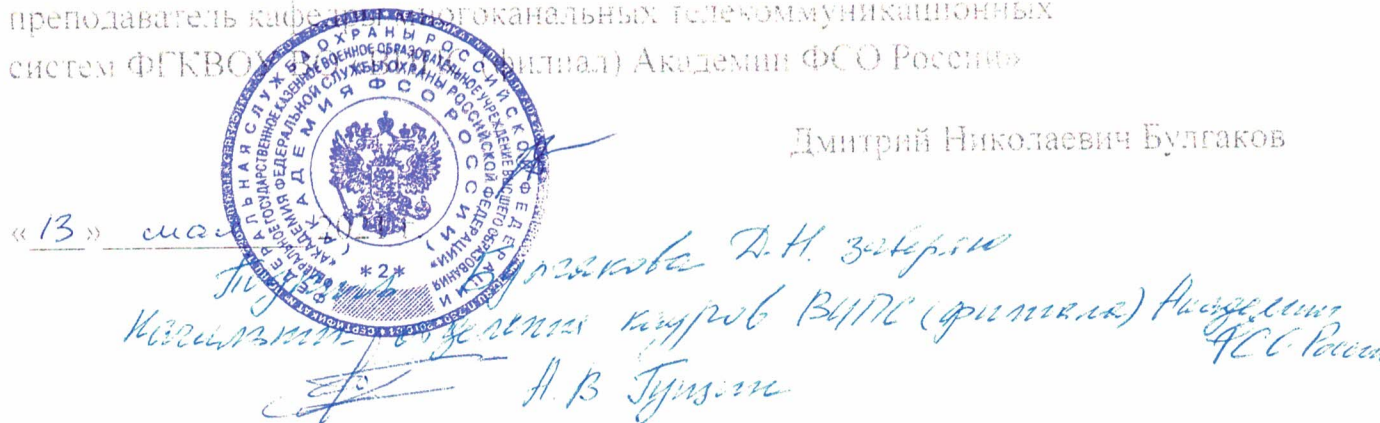 преподаватель кафедры многоканальных телекоммуникационных
систем ФГКВОУ (филиал) Академии ФСО России»
Дмитрий Николаевич Булгаков
«13» мая
ФЕДЕРАЛЬНАЯ СЛУЖБА ОХРАНЫ РОССИЙСКОЙ ФЕДЕРАЦИИ
ФЕДЕРАЛЬНОЕ ГОСУДАРСТВЕННОЕ КАЗЕННОЕ ВОЕННОЕ ОБРАЗОВАТЕЛЬНОЕ УЧРЕЖДЕНИЕ ВЫСШЕГО ОБРАЗОВАНИЯ
«АКАДЕМИЯ ФЕДЕРАЛЬНОЙ СЛУЖБЫ ОХРАНЫ РОССИЙСКОЙ ФЕДЕРАЦИИ»
(АКАДЕМИЯ ФСО РОССИИ)
*2*
Булгакова Д.Н. заверяю
Начальник отделения кадров (филиала) Академии
ФСО России
А.В